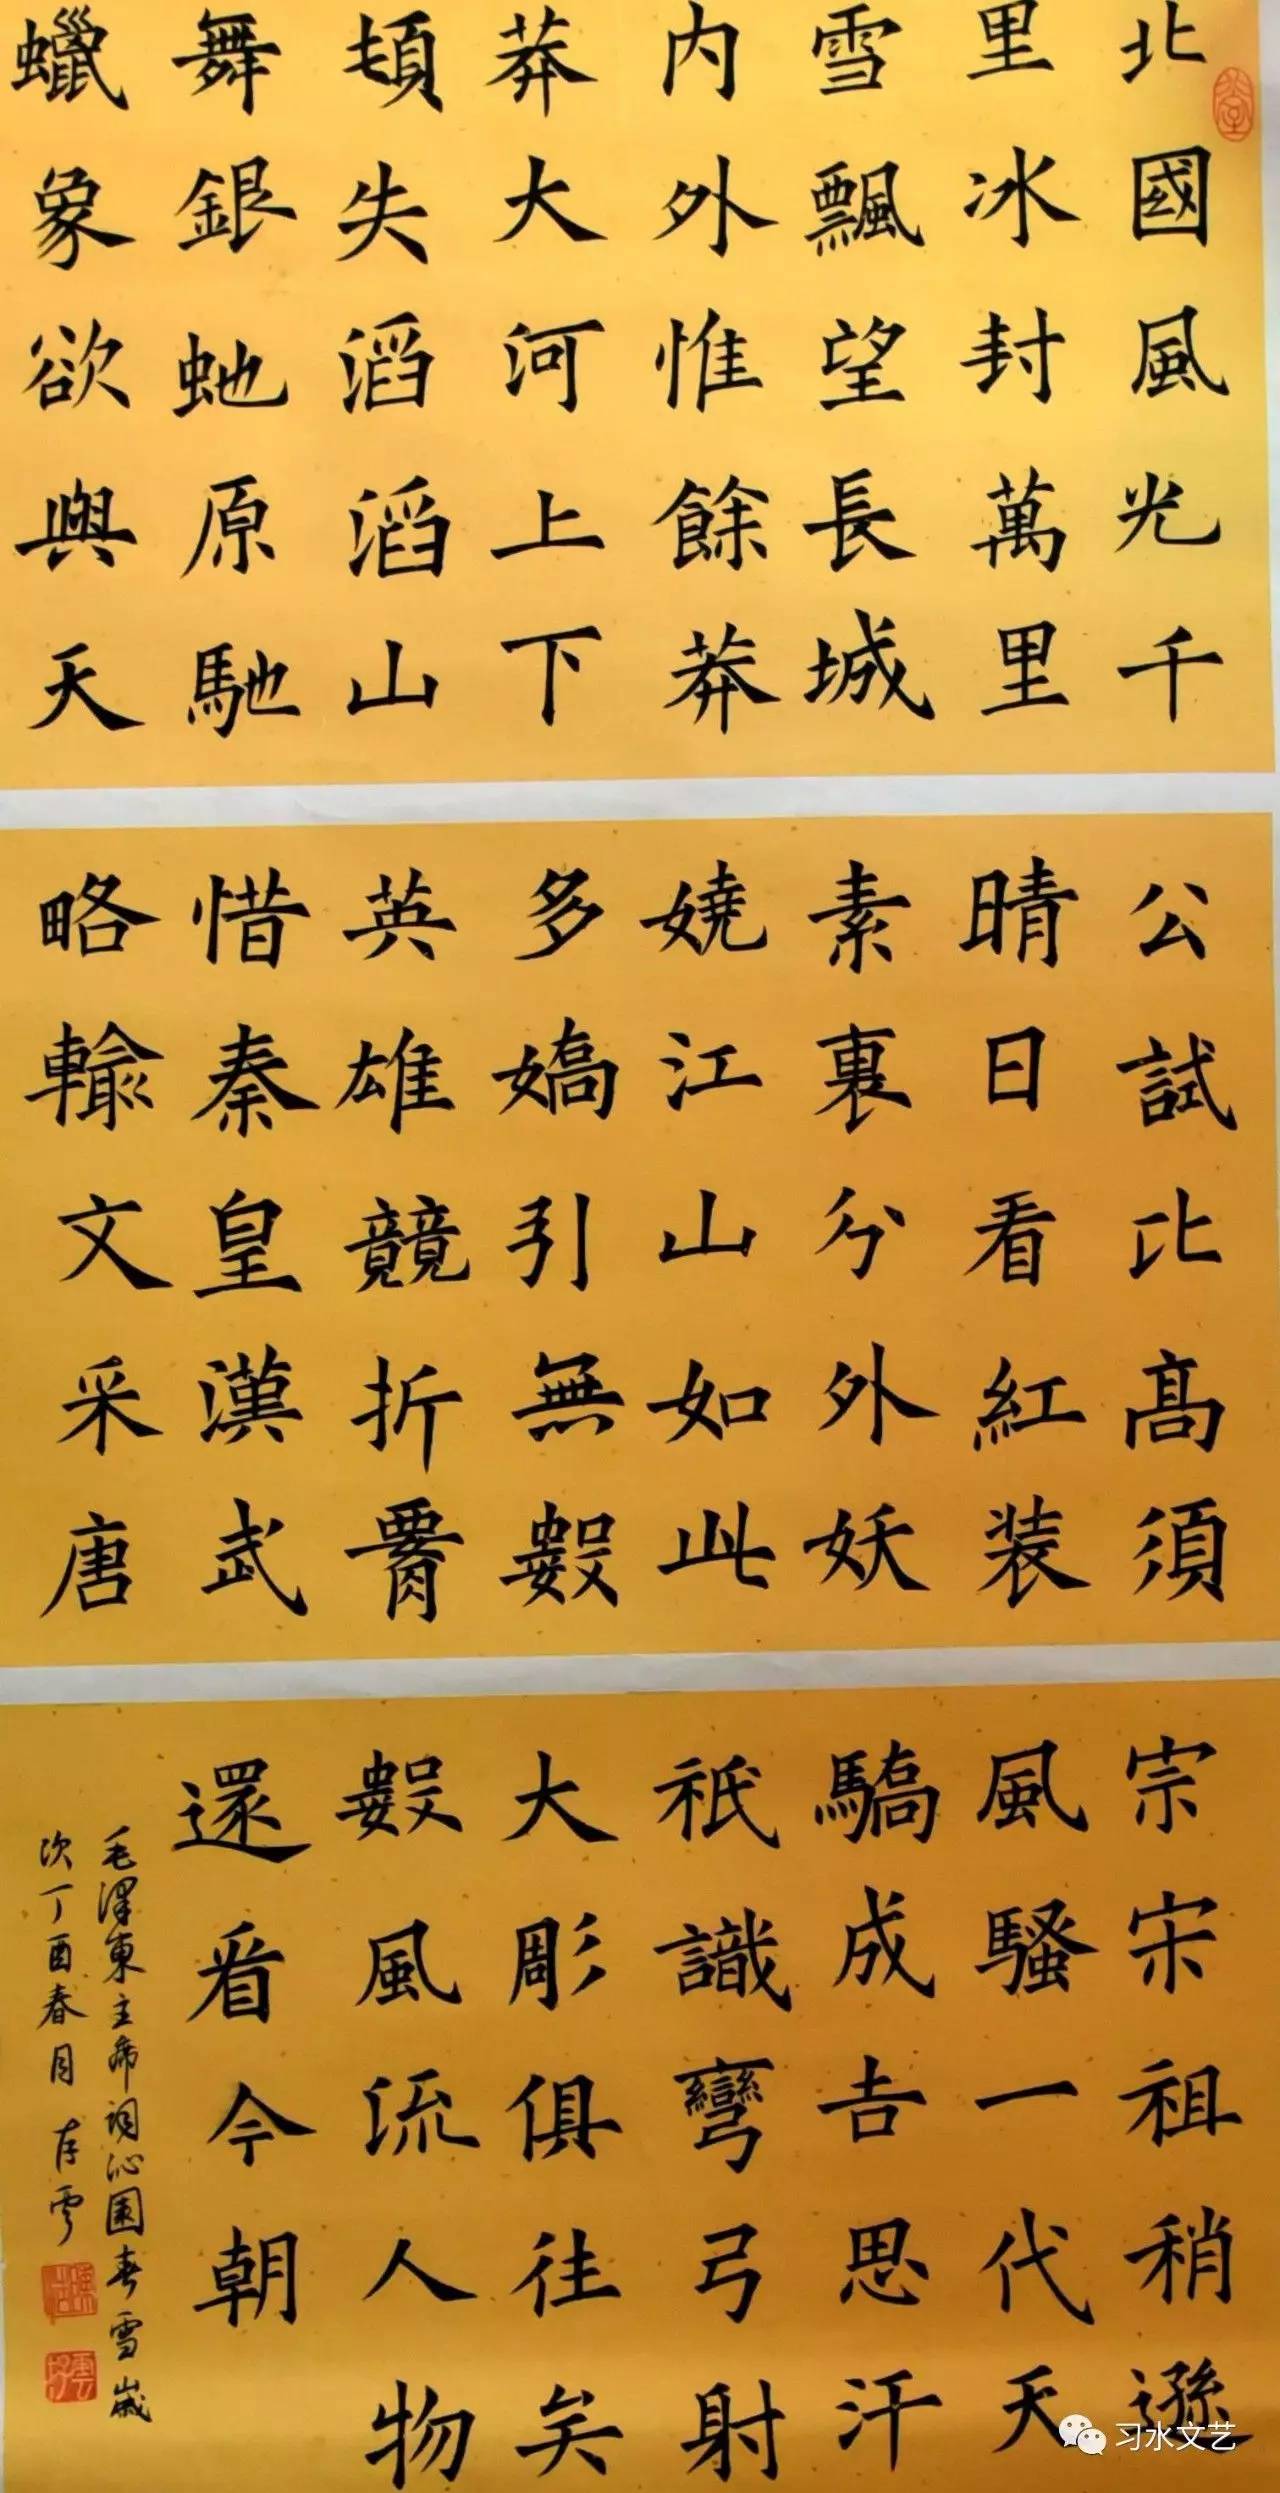 北國風光千
里冰封萬里
雪飄望長城
内外惟餘莽
莽大河上下
頓失滔滔山
舞銀虵原馳
蠟象欲與天
公試比高須
晴日看紅装
素裹分外妖
嬈江山如此
多嬌引無數
英雄競折腰
惜秦皇漢武
略輸文采唐
宗宋祖稍遜
風騷一代天
驕成吉思汗
祇識彎弓射
大彫俱往矣
數風流人物
還看今朝
毛澤東主席詞沁園春雪歲
次丁酉春月
习水文艺